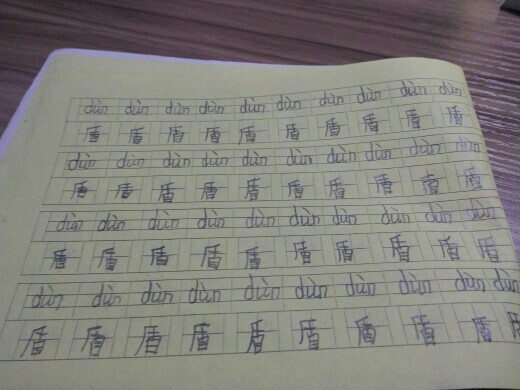 dùn dùn dùn dùn dùn dùn dùn dùn dùn dùn
盾 盾 盾 盾 盾 盾 盾 盾 盾 盾
dùn dùn dùn dùn dùn dùn dùn dùn dùn dùn
盾 盾 盾 盾 盾 盾 盾 盾 盾 盾
dùn dùn dùn dùn dùn dùn dùn dùn dùn dùn
盾 盾 盾 盾 盾 盾 盾 盾 盾 盾
dùn dùn dùn dùn dùn dùn dùn dùn dùn dùn
盾 盾 盾 盾 盾 盾 盾 盾 盾